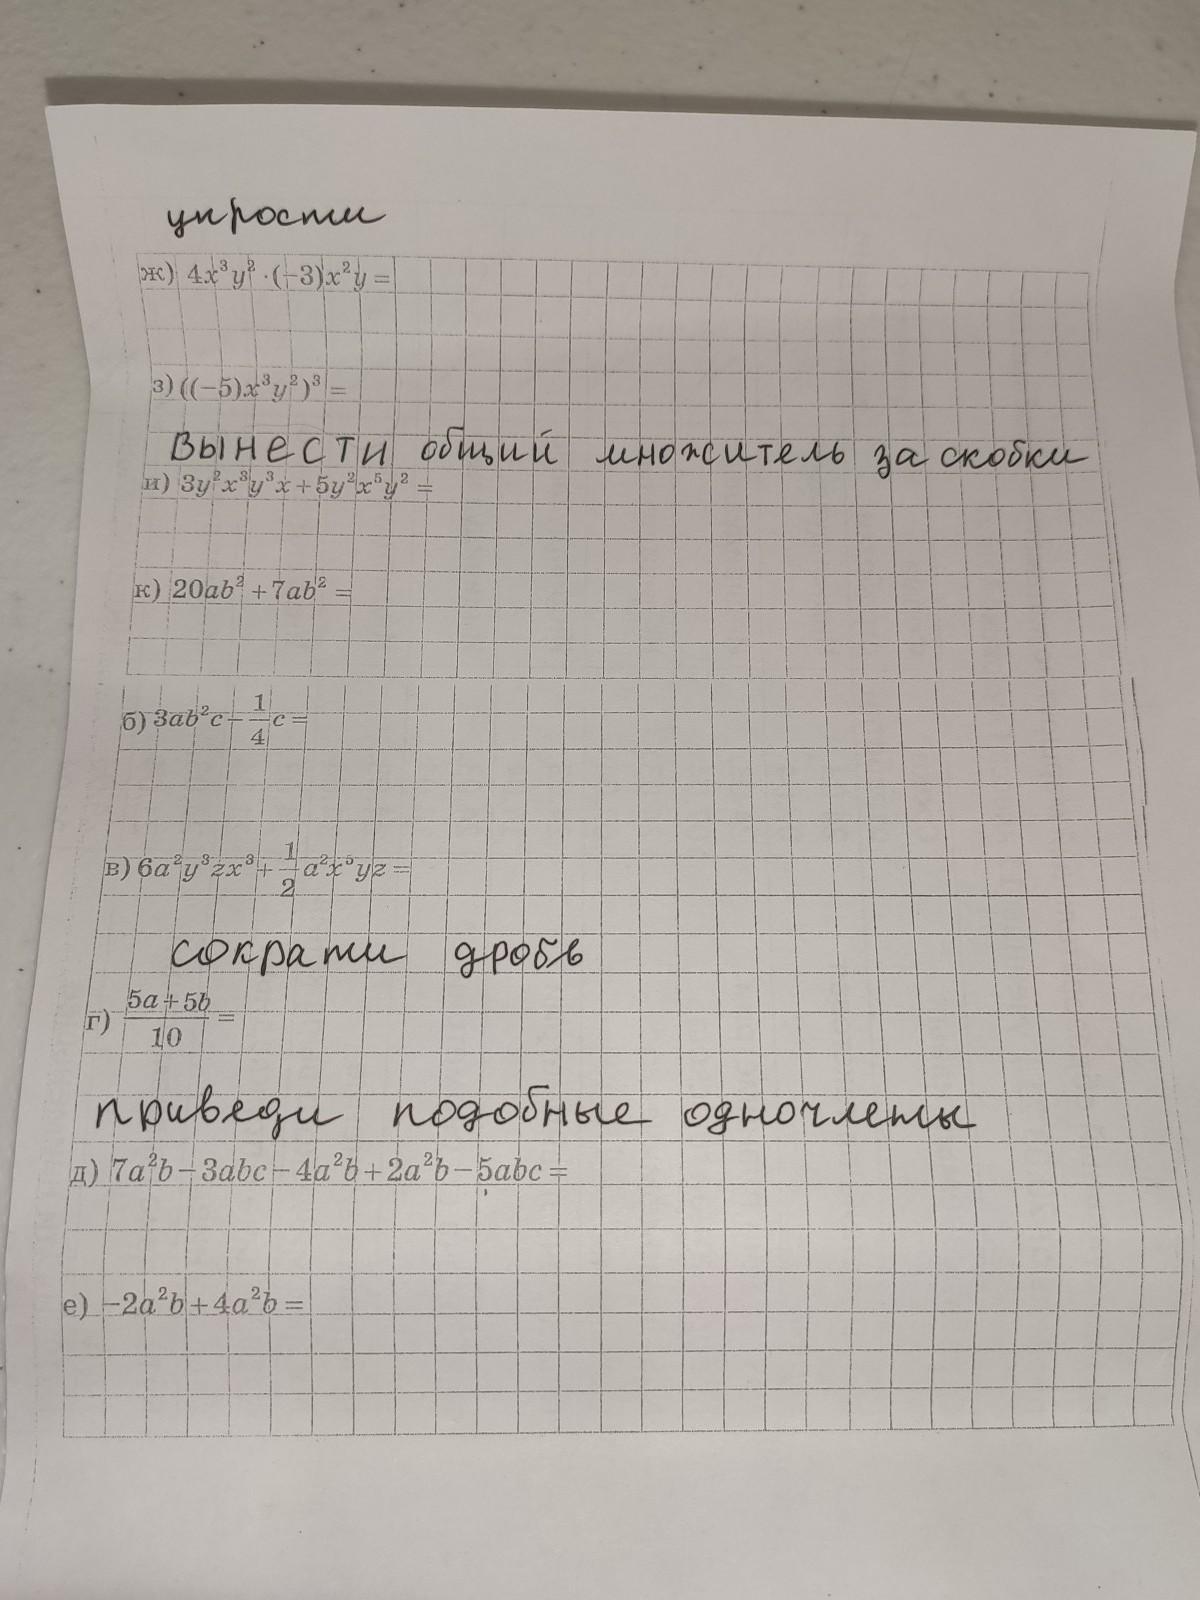 упрости
ж) 4x³y² · (−3)x²y =
з) ((−5)x³y²)³ =
Вынести общий множитель за скобки
и) 3y²x³y³x + 5y²x⁵y² =
к) 20ab² + 7ab² =
б) 3ab²c − 1/4 c =
в) 6a²y³zx³ + 1/2 a²x⁵yz =
сократи дробь
г) (5a + 5b)/10 =
приведи подобные одночлены
д) 7a²b − 3abc − 4a²b + 2a²b − 5abc =
е) −2a²b + 4a²b =